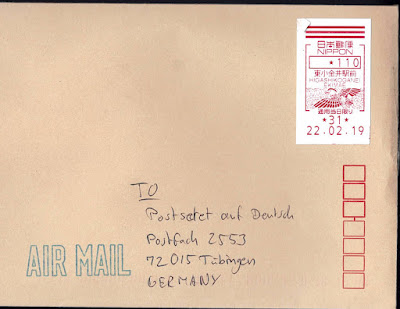 日本郵便
NIPPON
★110
東小金井駅前
HIGASHIKOGANEI
EKIMAE
通用当日限り
★31★
22.02.19
TO
Postsetet auf Deutsch
Postfach 2553
72015 Tübingen
GERMANY
AIR MAIL